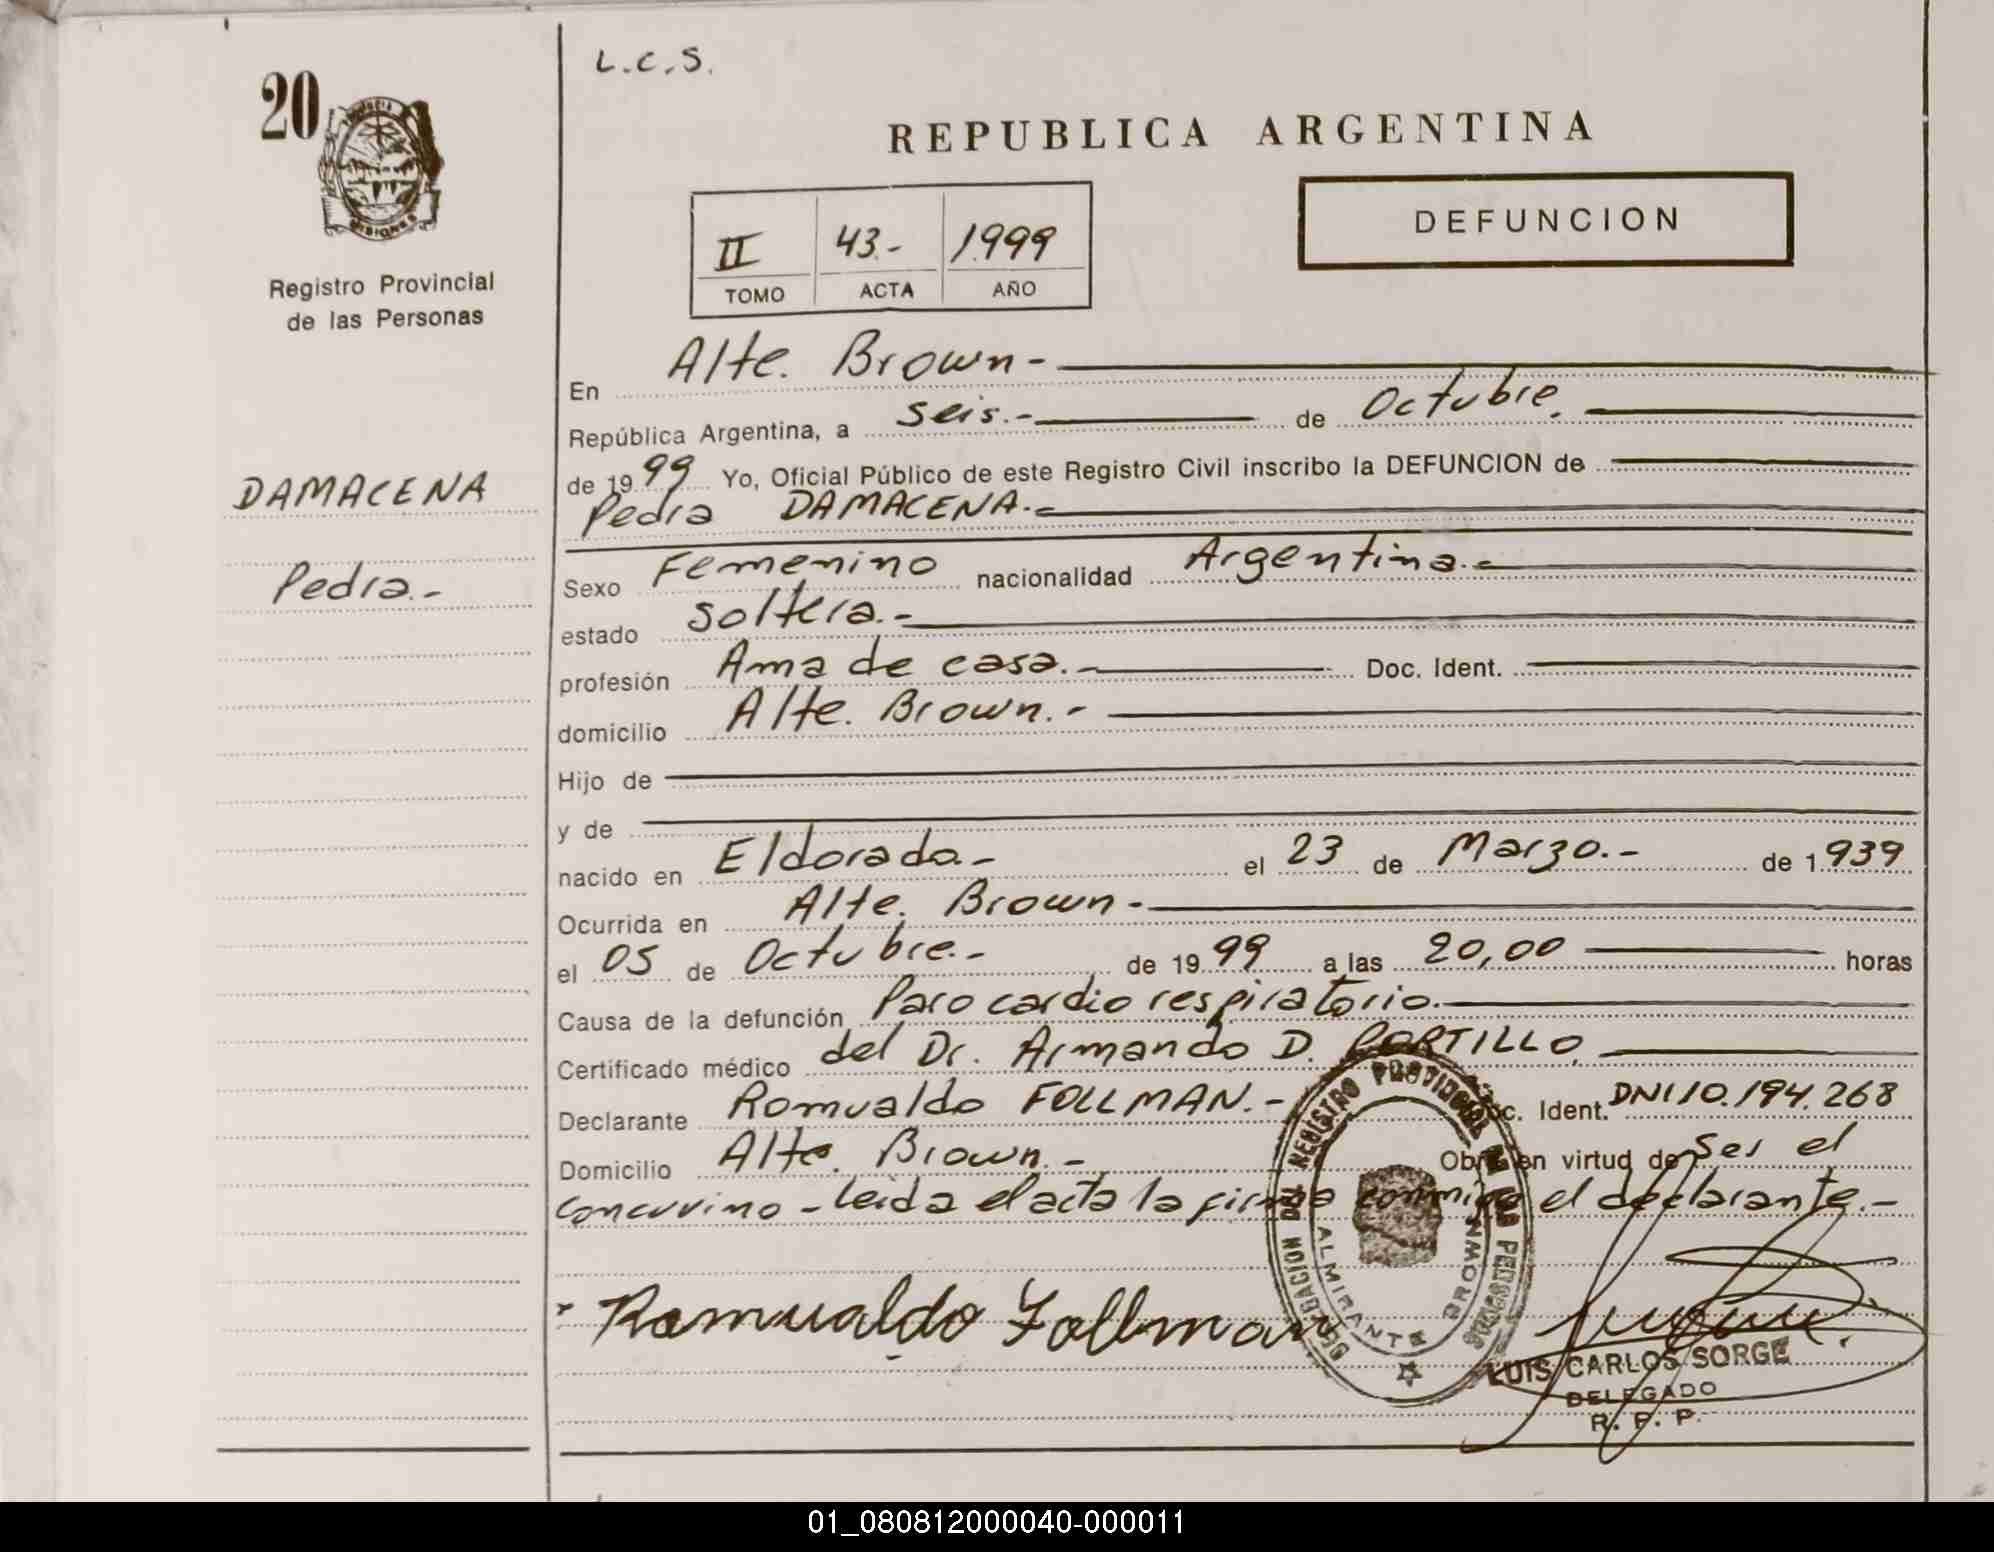 L.C.S.
20
MISIONES
Registro Provincial
de las Personas
REPUBLICA ARGENTINA
DEFUNCION
II 43.- 1.999
TOMO ACTA AÑO
En Alte. Brown-
República Argentina, a seis.- de Octubre.
de 1999 Yo, Oficial Público de este Registro Civil inscribo la DEFUNCION de
Pedra DAMACENA.-
DAMACENA
Pedra.-
Sexo Femenino nacionalidad Argentina.-
estado soltera.-
profesión Ama de casa.- Doc. Ident.
domicilio Alte. Brown.-
Hijo de
y de
nacido en Eldorado.- el 23 de Marzo.- de 1.939
Ocurrida en Alte. Brown-
el 05 de Octubre.- de 1999 a las 20,00 horas
Causa de la defunción Paro cardio respiratorio.-
Certificado médico del Dr. Armando D. PORTILLO.
Declarante Romualdo FOLLMAN.- Doc. Ident. DNI 10.194.268
Domicilio Alte. Brown.- Obra en virtud de ser el
concuvino - Leida el acta la firma conmigo el declarante.-
Romualdo Follman
DELEGACION DEL REGISTRO PROVINCIAL DE LAS PERSONAS
ALMIRANTE BROWN
LUIS CARLOS SORGE
DELEGADO
R. P. P.
01_080812000040-000011